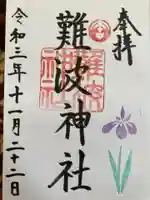 奉拝
難波神社
令和三年十一月二十二日